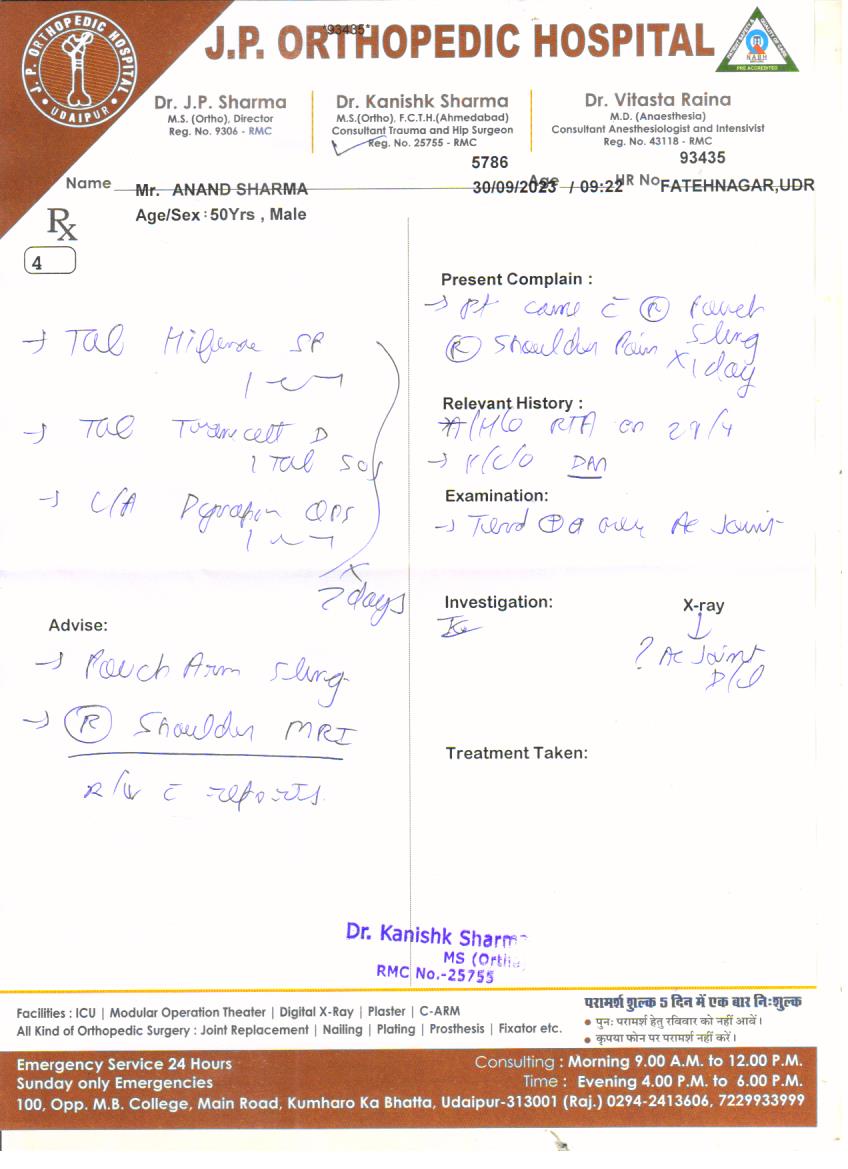 J.P. ORTHOPEDIC HOSPITAL
*93435*
J. P. ORTHOPEDIC HOSPITAL
UDAIPUR
PATIENT SAFETY & QUALITY OF CARE
NABH
PRE ACCREDITED
Dr. J.P. Sharma
M.S. (Ortho), Director
Reg. No. 9306 - RMC
Dr. Kanishk Sharma
M.S.(Ortho), F.C.T.H.(Ahmedabad)
Consultant Trauma and Hip Surgeon
Reg. No. 25755 - RMC
Dr. Vitasta Raina
M.D. (Anaesthesia)
Consultant Anesthesiologist and Intensivist
Reg. No. 43118 - RMC
5786 93435
Name Mr. ANAND SHARMA Age 30/09/2023 / 09:22 HR No FATEHNAGAR,UDR
Age/Sex : 50Yrs , Male
Rx
4
→ Tab SP
→ Tab D
1 Tab SOS
→
x
7 days
Advise:
→ Pouch Arm Sling
→ (R) Shoulder MRI
R/W c̄ reports.
Present Complain :
→ Pt came c̄ (R) Pouch
Sling
(R) Shoulder Pain x 1 day
Relevant History :
A/H/O RTA on 29/9
→ K/C/O
Examination:
→ Tend ⊕ over AC Joint
Investigation: X-ray
↓
? AC Joint
D/L
Treatment Taken:
Dr. Kanishk Sharm
MS (Ortho
RMC No.-25755
Facilities : ICU | Modular Operation Theater | Digital X-Ray | Plaster | C-ARM
All Kind of Orthopedic Surgery : Joint Replacement | Nailing | Plating | Prosthesis | Fixator etc.
परामर्श शुल्क 5 दिन में एक बार निःशुल्क
• पुनः परामर्श हेतु रविवार को नहीं आवें।
• कृपया फोन पर परामर्श नहीं करें।
Emergency Service 24 Hours
Sunday only Emergencies
Consulting : Morning 9.00 A.M. to 12.00 P.M.
Time : Evening 4.00 P.M. to 6.00 P.M.
100, Opp. M.B. College, Main Road, Kumharo Ka Bhatta, Udaipur-313001 (Raj.) 0294-2413606, 7229933999